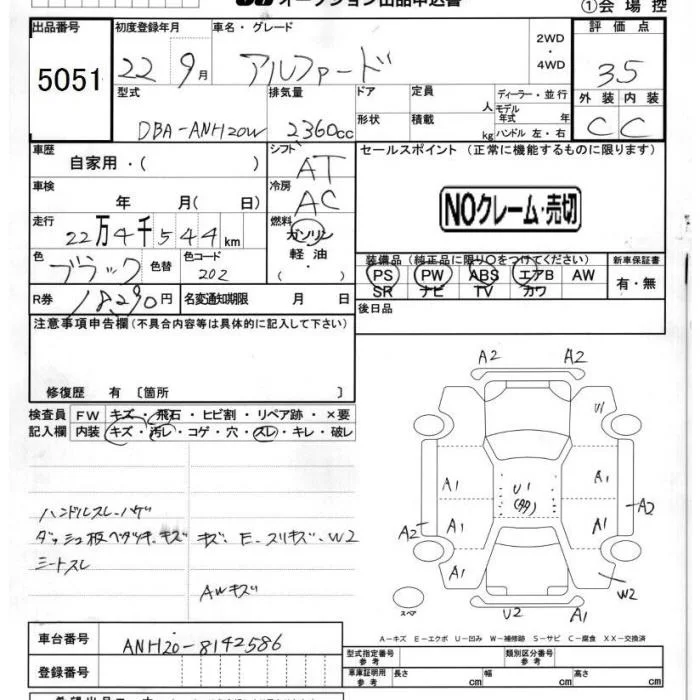 オークション出品申込書
①会場控
出品番号 初度登録年月 車名・グレード 評価点
5051 22 9月 アルファード 2WD ・ 4WD 3.5
型式 排気量 ドア 定員 人 ディーラー・並行 外装 内装
DBA-ANH20W 2360cc 形状 積載 kg モデル年式 年 ハンドル 左・右 C C
車歴 シフト セールスポイント (正常に機能するものに限ります)
自家用・( ) AT
車検 冷房
年 月( 日) AC NOクレーム・売切
走行 燃料
22万4千544km ガソリン
色 色替 色コード 軽油 装備品 (純正品に限り○をつけてください) 新車保証書
ブラック 202 ・( ) PS PW ABS エアB AW 有・無
SR ナビ TV カワ
R券 18,290円 名変通知期限 月 日 後日品
注意事項申告欄(不具合内容等は具体的に記入して下さい)
修復歴 有 〔箇所 〕
検査員 FW キズ・飛石・ヒビ割・リペア跡・×要
記入欄 内装 キズ・汚レ・コゲ・穴・スレ・キレ・破レ
ハンドルスレ・ハゲ
ダッシュ板ベタツキ、キズ キズ、E、スリキズ・W2
シートスレ
AWキズ
A2 A2
U1
A1 U1 A1
A2 A1 A1 A2
A1 A1
W2
スペア U2 A1
A-キズ E-エクボ U-凹み W-補修跡 S-サビ C-腐食 XX-交換済
車台番号 ANH20-8142586
型式指定番号 参考 類別区分番号 参考
登録番号 車庫証明用 参考 長さ cm 幅 cm 高さ cm